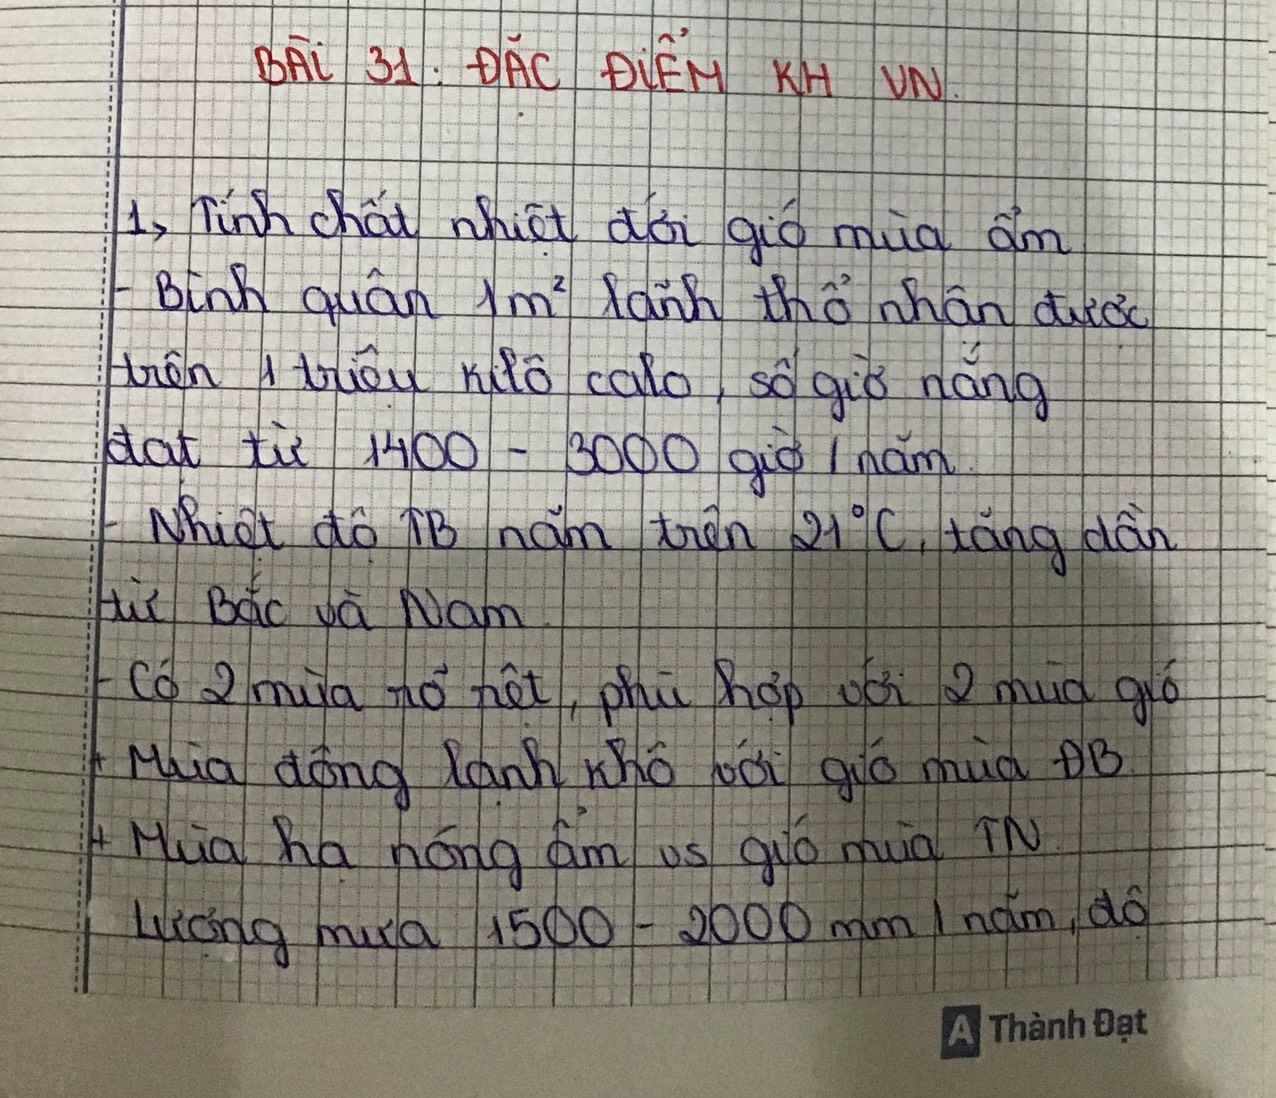 BÀI 31: ĐẶC ĐIỂM KH VN.
1, Tính chất nhiệt đới gió mùa ẩm
- Bình quân 1m² lãnh thổ nhận được
trên 1 triệu kilô calo, số giờ nắng
đạt từ 1400 - 3000 giờ / năm.
- Nhiệt độ TB năm trên 21°C, tăng dần
từ Bắc và Nam.
- Có 2 mùa rõ rệt, phù hợp với 2 mùa gió
+ Mùa đông lạnh khô với gió mùa ĐB
+ Mùa hạ nóng ẩm vs gió mùa TN.
Lượng mưa 1500 - 2000 mm / năm, độ
A Thành Đạt